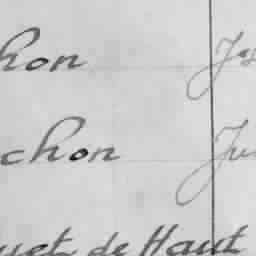 hon
chon
uet de Haut